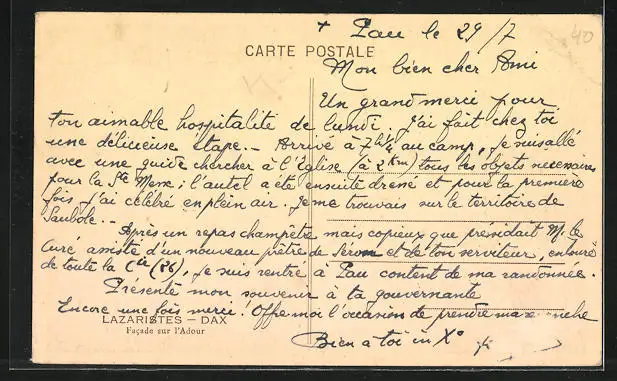 + Pau le 29/7
40
CARTE POSTALE
Mon bien cher Ami
Un grand merci pour
ton aimable hospitalité de lundi. J'ai fait chez toi
une délicieuse étape. - Arrivé à 7h¼ au camp, je suis allé
avec une guide chercher à l'Eglise (à 2 Km) tous les objets necessaires
pour la Ste Messe ; l'autel a été ensuite dressé et pour la première
fois j'ai célébré en plein air. Je me trouvais sur le territoire de
Saubole. -
Après un repas champêtre mais copieux que présidait M. le
Curé assisté d'un nouveau prêtre de et de ton serviteur, entouré
de toute la Cie (26), je suis rentré à Pau content de ma randonnée.
Présente mon souvenir à ta gouvernante
Encore une fois merci. Offre moi l'occasion de prendre ma
LAZARISTES — DAX
Façade sur l'Adour
Bien à toi in Xo